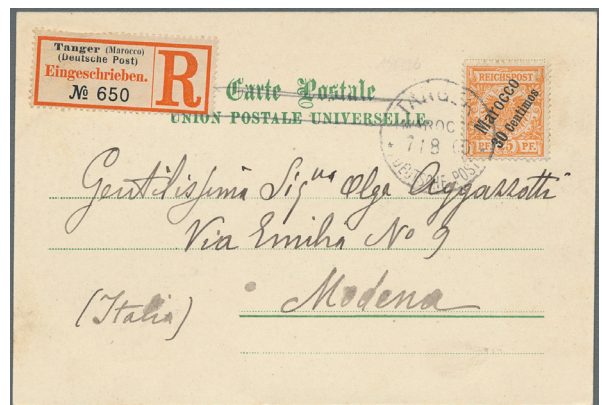 Tanger (Marocco)
(Deutsche Post)
Eingeschrieben.
R
№ 650
Carte Postale
UNION POSTALE UNIVERSELLE.
REICHSPOST
Marocco
30 Centimos
25 PF
TANGER
MAROC
7/8
DEUTSCHE POST
Gentilissima Sigⁿᵃ Olga Aggazzotti
Via Emilia Nº 9
Modena
(Italia)